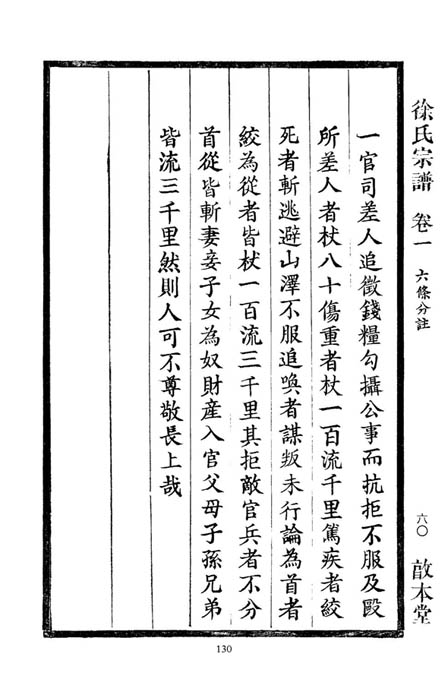 徐氏宗譜 卷一 六條分註 六〇 敨本堂
一官司差人追徵錢糧勾攝公事而抗拒不服及毆
所差人者杖八十傷重者杖一百流千里篤疾者絞
死者斬逃避山澤不服追喚者謀叛未行論為首者
絞為從者皆杖一百流三千里其拒敵官兵者不分
首從皆斬妻妾子女為奴財産入官父母子孫兄弟
皆流三千里然則人可不尊敬長上哉
130